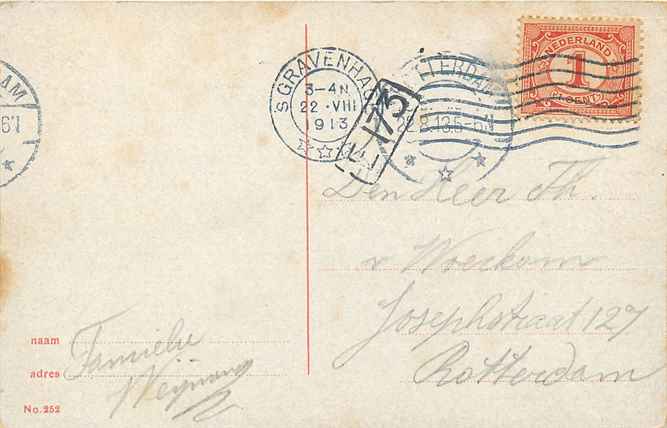 NEDERLAND
1
CENT
S GRAVENHAGE
3-4 N
22 · VIII
1913
173
ROTTERDAM
22.8.13.5-6N
DAM
Den Heer Th.
v Woerkom
Josephstraat 127
Rotterdam
naam Familie
adres
No. 252